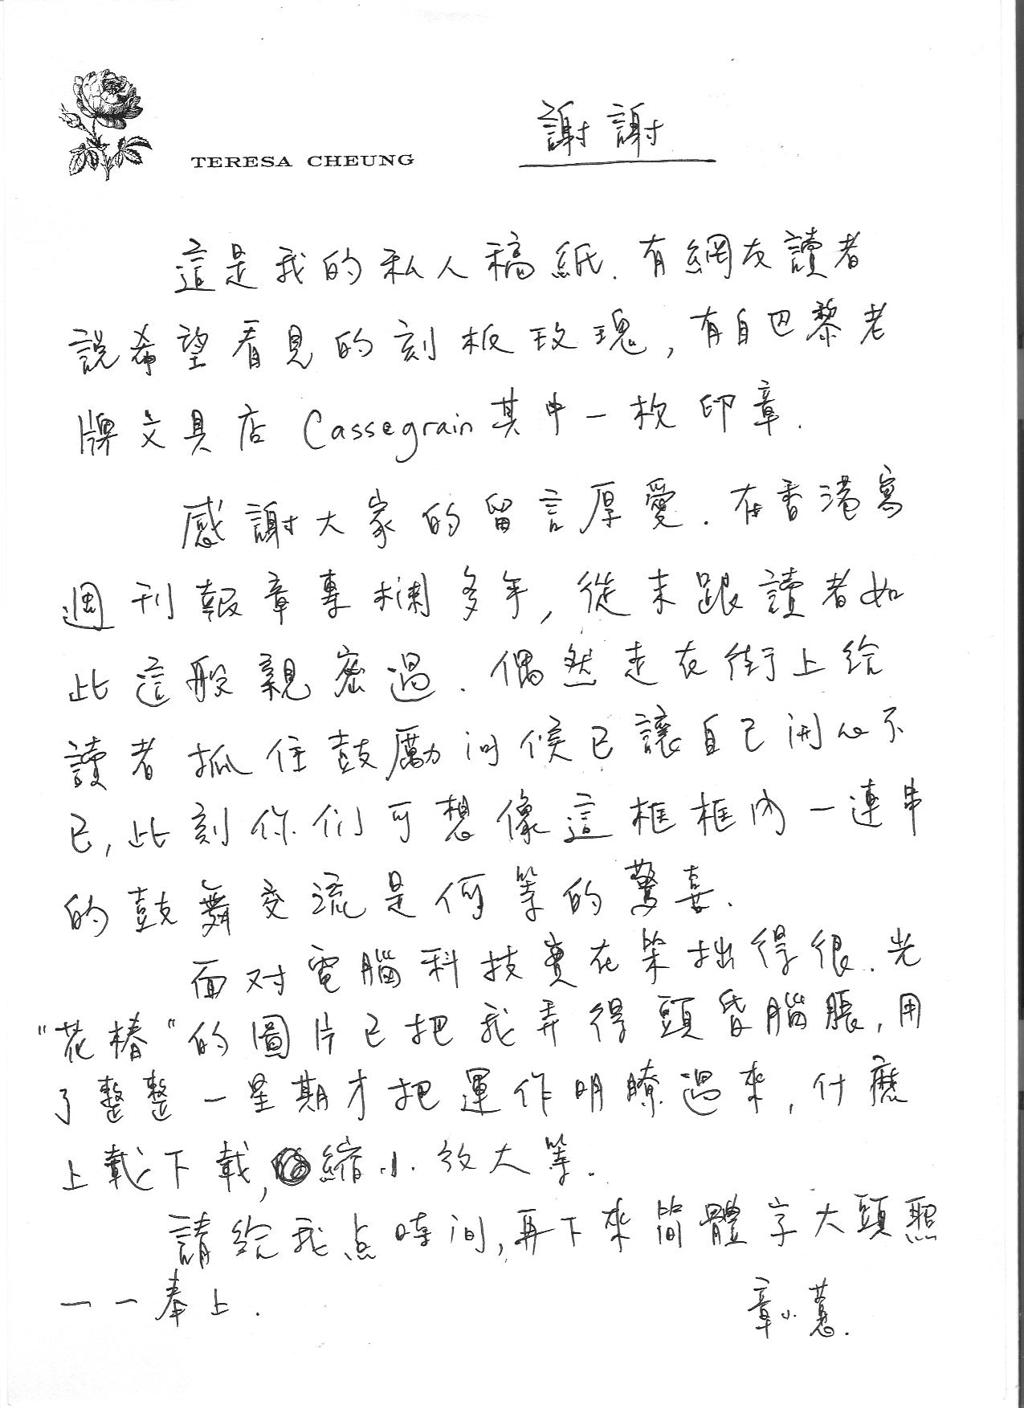 TERESA CHEUNG
謝謝
這是我的私人稿紙. 有網友讀者
說希望看見的刻板玫瑰, 有自巴黎老
牌文具店 Cassegrain 其中一枚印章.
感謝大家的留言厚愛. 在香港寫
週刊報章專欄多年, 從未跟讀者如
此這般親密過. 偶然走在街上給
讀者抓住鼓勵问候已讓自己開心不
已, 此刻你们可想像這框框內一連串
的鼓舞交流是何等的驚喜.
面对電腦科技實在笨拙得很. 光
"花椿"的圖片已把我弄得頭昏腦脹, 用
了整整一星期才把運作明瞭過來, 什麽
上載下載, 縮小放大等.
請給我点時间, 再下來簡體字大頭照
一一奉上.
章小蕙.